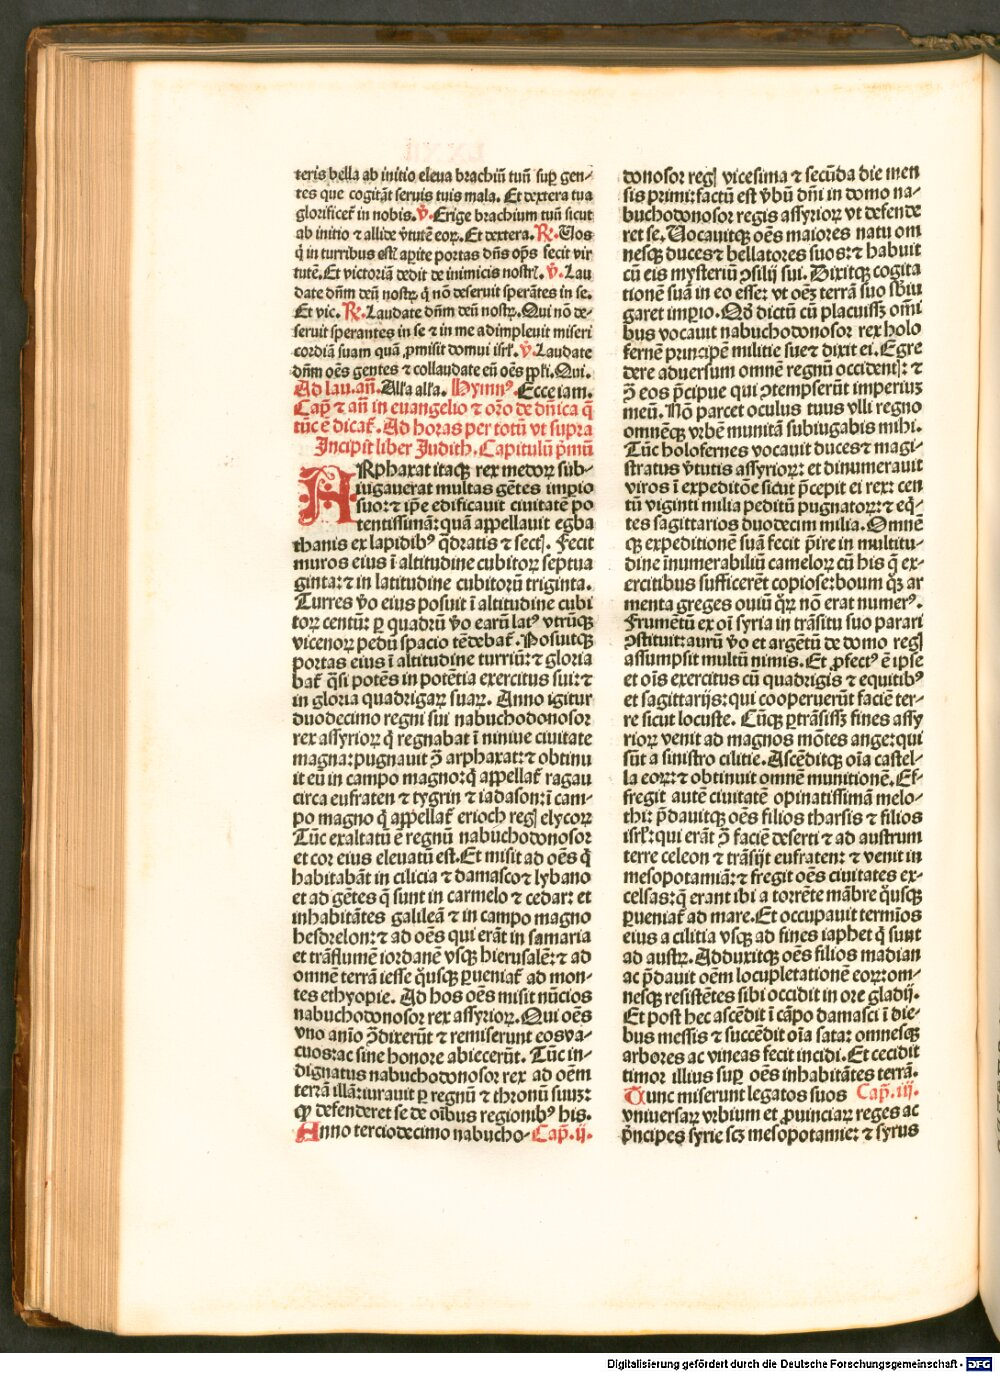 teris bella ab initio eleua brachiū tuū suꝑ gen-
tes que cogitāt seruis tuis mala. Et dextera tua
glorificet᷑ in nobis. ℣. Erige brachium tuū sicut
ab initio ⁊ allide v̓tutē eoꝝ. Et dextera. ℟. Uos
q̄ in turribus estl̓ aꝑite portas dn̄s oꝑs fecit vir
tutē. Et victoriā dedit de inimicis nostrꝭ. ℣. Lau
date dn̄m deū nostꝝ q̄ nō deseruit sperātes in se.
Et vic. ℟. Laudate dn̄m deū nostꝝ. Qui nō de-
seruit sperantes in se ⁊ in me adimpleuit miseri
cordiā suam quā ꝓmisit domui isrl̓. ℣. Laudate
dn̄m oēs gentes ⁊ collaudate eū oēs ppl̓i. Qui.
Ad lau. an̄. All'a all'a. Hymnꝰ. Ecce iam.
Cap̄ ⁊ an̄ in euangelio ⁊ oro de dn̄ica q̄
tūc ē dicat᷑. Ad horas per totū vt supra
Incipit liber Judith. Capitulū p̄mū
ARphaxat itaqꝫ rex medoꝝ sub-
iugauerat multas gētes imꝑio
suo: ⁊ ip̄e edificauit ciuitatē po
tentissimā: quā appellauit egba
thanis ex lapidibꝰ q̄dratis ⁊ sectꝭ. Fecit
muros eius ī altitudine cubitoꝝ septua
ginta: ⁊ in latitudine cubitorū triginta.
Turres v̓o eius posuit ī altitudine cubi
toꝝ centū: ꝑ quadrū v̓o earū latꝰ vtrūqꝫ
vicenoꝝ pedū spacio tēdebat᷑. Posuitqꝫ
portas eius ī altitudine turriū: ⁊ gloria
bat᷑ q̄si potēs in potētia exercitus sui: ⁊
in gloria quadrigaꝝ suaꝝ. Anno igitur
duodecimo regni sui nabuchodonosor
rex assyrioꝝ q̄ regnabat ī niniue ciuitate
magna: pugnauit ꝯ̄ arphaxat: ⁊ obtinu
it eū in campo magno: q̄ appellat᷑ ragau
circa eufraten ⁊ tygrin ⁊ iadason: ī cam-
po magno q̄ appellat᷑ erioch regꝭ elycoꝝ
Tūc exaltatū ē regnū nabuchodonosor
et cor eius eleuatū est. Et misit ad oēs q̄
habitabāt in cilicia ⁊ damasco ⁊ lybano
et ad gētes q̄ sunt in carmelo ⁊ cedar: et
inhabitātes galileā ⁊ in campo magno
hesdrelon: ⁊ ad oēs qui erāt in samaria
et trāsflumē iordanē vsqꝫ hierusalē: ⁊ ad
omnē terrā iesse q̊usqꝫ ꝑueniat᷑ ad mon-
tes ethyopie. Ad hos oēs misit nūcios
nabuchodonosor rex assyrioꝝ. Qui oēs
vno anīo ꝯ̄dixerūt ⁊ remiserunt eos va-
cuos: ac sine honore abiecerūt. Tūc in-
dignatus nabuchodonosor rex ad oēm
terrā illā: iurauit ꝑ regnū ⁊ thronū suuꝫ:
ꝙ defenderet se de oībus regionibꝰ his.
Anno terciodecimo nabucho- Cap̄. ij.
donosor regꝭ vicesima ⁊ secūda die men
sis primi: factū est v̓bū dn̄i in domo na-
buchodonosor regis assyrioꝝ vt defende
ret se. Uocauitqꝫ oēs maiores natu om
nesqꝫ duces ⁊ bellatores suos: ⁊ habuit
cū eis mysteriū ꝯsilij sui. Dixitqꝫ cogita
tionē suā in eo esse: vt oēꝫ terrā suo sbiu
garet imꝑio. Qd̓ dictū cū placuissꝫ om̄i
bus vocauit nabuchodonosor rex holo
fernē principē militie sue ⁊ dixit ei. Egre
dere aduersum omnē regnū occidentꝭ: ⁊
ꝯ̄ eos p̄cipue qui ꝯtempserūt imperiuꝫ
meū. Nō parcet oculus tuus vlli regno
omnēqꝫ vrbē munitā subiugabis mihi.
Tūc holofernes vocauit duces ⁊ magi-
stratus v̓tutis assyrioꝝ: et dinumerauit
viros ī expeditōe sicut p̄cepit ei rex: cen
tū viginti milia peditū pugnatoꝝ: ⁊ eq̄-
tes sagittarios duodecim milia. Omnē
qꝫ expeditionē suā fecit p̄ire in multitu-
dine īnumerabiliū cameloꝝ cū his q̄ ex-
ercitibus sufficerēt copiose: boum qꝫ ar
menta greges ouiū q̊ꝝ nō erat numerꝰ.
Frumētū ex oī syria in trāsitu suo parari
ꝯstituit: aurū v̓o et argētū de domo regꝭ
assumpsit multū nimis. Et ꝓfectꝰ ē ipse
et oīs exercitus cū quadrigis ⁊ equitibꝰ
et sagittarijs: qui cooperuerūt faciē ter-
re sicut locuste. Cūqꝫ ꝑtrāsissꝫ fines assy
rioꝝ venit ad magnos mōtes ange: qui
sūt a sinistro cilitie. Ascēditqꝫ oīa castel-
la eoꝝ: ⁊ obtinuit omnē munitionē. Ef-
fregit autē ciuitatē opinatissimā melo-
thi: p̄dauitqꝫ oēs filios tharsis ⁊ filios
isrl̓: qui erāt ꝯ̄ faciē deserti ⁊ ad austrum
terre celeon ⁊ trāsijt eufraten: ⁊ venit in
mesopotamiā: ⁊ fregit oēs ciuitates ex-
celsas: q̄ erant ibi a torrēte mābre q̊usqꝫ
ꝑueniat᷑ ad mare. Et occupauit termīos
eius a cilitia vsqꝫ ad fines iaphet q̄ sunt
ad austꝝ. Adduxitqꝫ oēs filios madian
ac p̄dauit oēm locupletationē eoꝝ: om-
nesqꝫ resistētes sibi occidit in ore gladij.
Et post hec ascēdit ī cāpo damasci ī die-
bus messis ⁊ succēdit oīa sata: omnesqꝫ
arbores ac vineas fecit incidi. Et cecidit
timor illius suꝑ oēs inhabitātes terrā.
Tunc miserunt legatos suos Cap̄. iij.
vniuersaꝝ vrbium et ꝓuinciaꝝ reges ac
p̄ncipes syrie scꝫ mesopotamie: ⁊ syrus
Digitalisierung gefördert durch die Deutsche Forschungsgemeinschaft - DFG